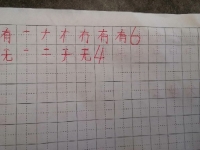 有一ナオ冇有有6
无一二于无4